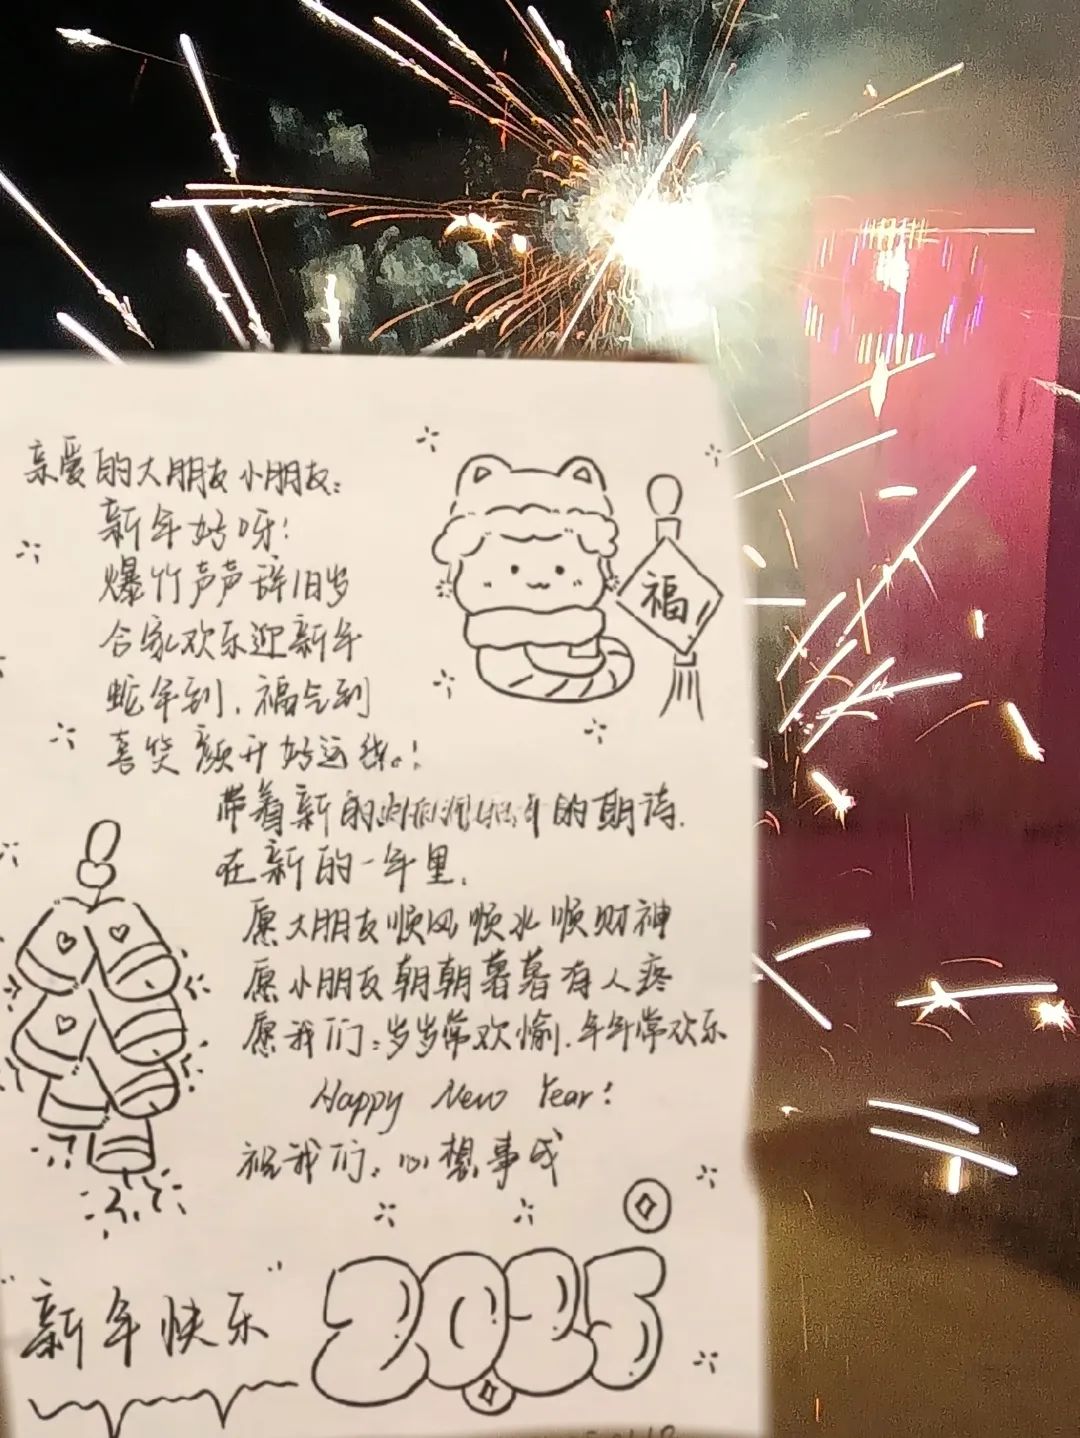 亲爱的大朋友小朋友：
新年好呀！
爆竹声声辞旧岁
合家欢乐迎新年
蛇年到，福气到
喜笑颜开好运绕。！
福
带着新的的期许.
在新的一年里.
愿大朋友顺风顺水顺财神
愿小朋友朝朝暮暮有人疼
愿我们：岁岁常欢愉.年年常欢乐
Happy New Year!
祝我们：心想事成
新年快乐
2025